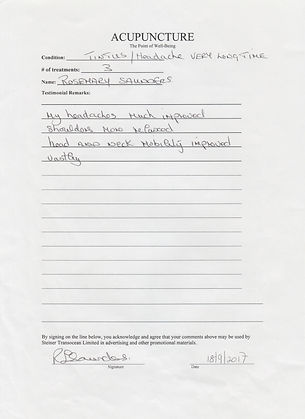 ACUPUNCTURE
The Point of Well-Being
Condition: TINTIUS / Headache VERY LONG-TIME
# of treatments: 3
Name: ROSEMARY SAUNDERS
Testimonial Remarks:
My headaches much improved
Shoulders more relaxed
head AND Neck Mobility improved
vastly
By signing on the line below, you acknowledge and agree that your comments above may be used by
Steiner Transocean Limited in advertising and promotional materials.
R Saunders.
18/9/2017
Signature Date